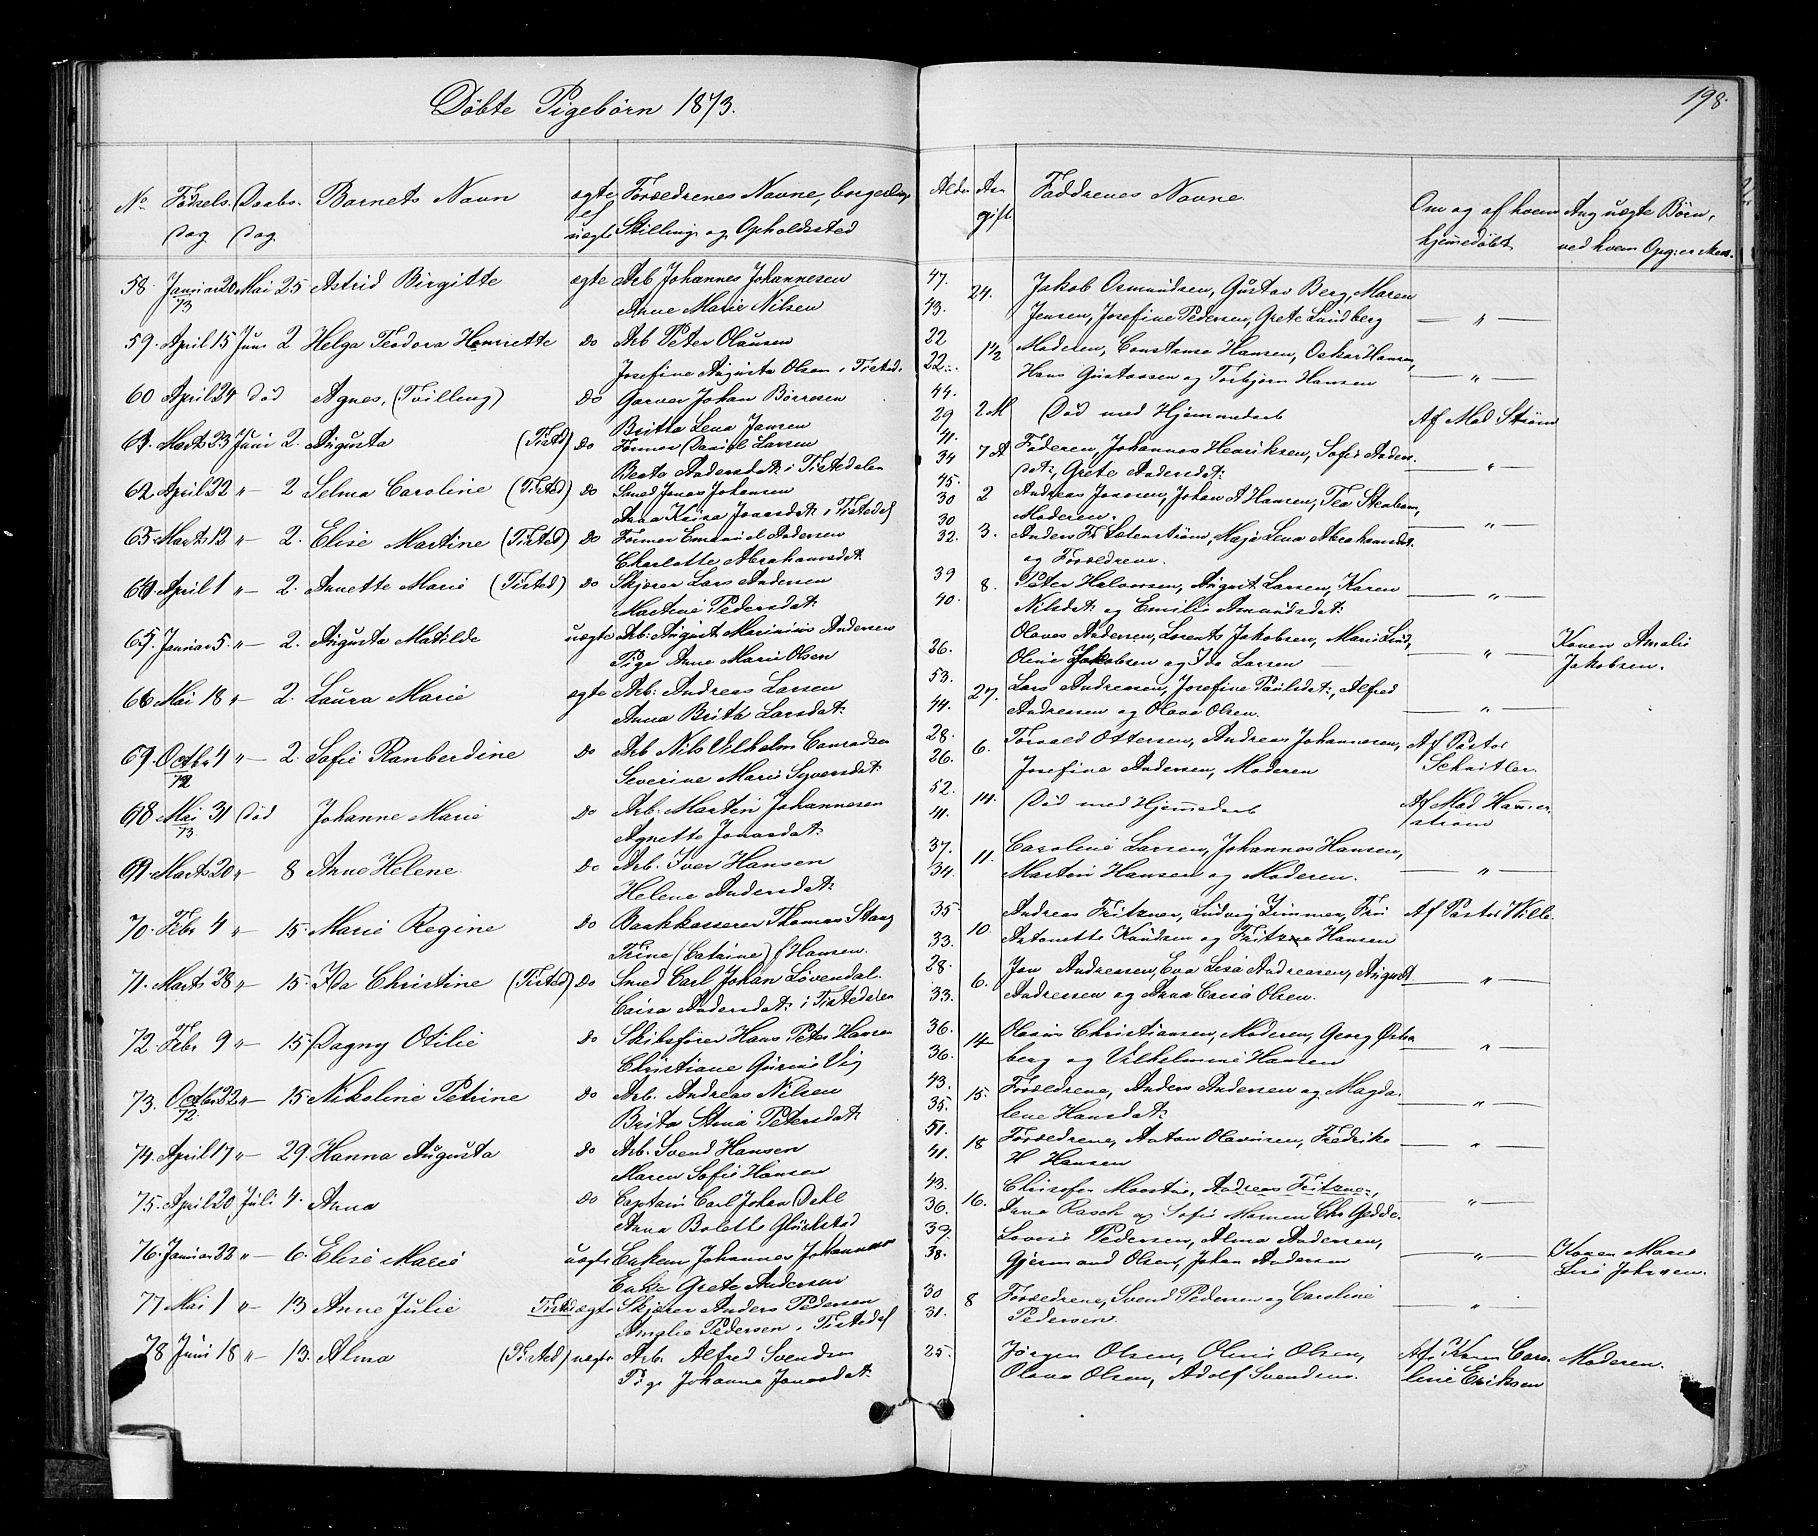 Döbte Pigebörn 1873.
198.
No Fødsels dag Daabs dag Barnets Navn ægte el uægte Forældrenes Navne, borgerlige Stilling og Opholdssted Alder Angift Faddrenes Navne Om og af hvem hjemmedøbt Ang uægte Børn, ved hvem Opg: er
58. Januar 20/73 Mai 25 Astrid Birgitte ægte Arb Johannes Johannesen 47. 24. Jakob Osmundsen, Gustav Berg, Maren
Anne Marie Nilsen 43. Jensen, Josefine Pedersen, Grete Lundberg — " —
59. April 15 Juni 2 Helga Teodora Henriette do Arb Peter Olausen 22 1½ Moderen, Constanse Hansen, Oskar Hansen,
Josefine Augusta Olsen i Tisted. 22 Hans Gustavsen og Torbjørn Hansen — " —
60 April 24 Død Agnes, (Tvilling) do Garver Johan Börresen 44. 2 M Død med Hjemmedaab Af Mad Strøm
Britta Lena Jansen 29
61. Marts 23 Juni 2. Augusta (Tisted) do Former Daniel Larsen 41. 7 A Faderen, Johannes Henriksen, Sofie Anders-
Beata Andersdat: i Tistedalen 34 dat:, Grete Andersdat: — " —
62 April 22 " — 2 Selma Caroline (Tisted) do Smed Jonas Johansen 45. 2 Andreas Jonsen, Johan A Hansen, Tea Stenbom,
Anna Kaisa Jonasdat: i Tistedal 30 Moderen. — " —
63 Marts 12 " — 2. Elise Martine (Tisted) do Former Emanuel Andersen 30 3. Anders Fr. Letenstrøm, Maja Lena Abrahamsdat.
Charlotte Abrahamsdat: 32. og Forældrene.
64 April 1 " — 2. Annette Marie (Tisted) do Skjærer Lars Andersen 39 8. Peter Halvorsen, August Larsen, Karen
Martine Pedersdat: 40. Nilsdat: og Emilie Amundsdat: — " —
65. Januar 5. " — 2. Augusta Matilde uægte Arb. August Marinius Andersen Olaves Andersen, Lorents Jakobsen, Marie Lund, Konen Amalie
Pige Anne Marie Olsen 26. Oline Jakobsen og Ida Larsen — " — Jakobsen.
66 Mai 18 " — 2. Laura Marie ægte Arb: Andreas Larsen 53. 27. Lars Andreasen, Josefine Paulsdat:, Alfred
Anna Brita Larsdat: 44. Andreasen og Olava Olsen. — " —
67. Octbr 4/72 " — 2. Sofie Ranberdine do Arb Nils Vilhelm Conradsen 28. 6. Torvald Ottersen, Andreas Johannesen, Af Pastor
Severine Marie Syversdat: 26. Josefine Andersen, Moderen Schnitler.
68 Mai 31/73. Død Johanne Marie do Arb: Martin Johannesen 52. 14. Død med Hjemmedaab Af Mad Hammer-
Agnette Jonasdat: 41. strøm
69. Marts 20 " 8 Anne Helene. do Arb. Iver Hansen 37. 11. Caroline Larsen, Johannes Hansen,
Helene Andersdat: 34. Martin Hansen og Moderen. — " —
70. Febr 4 " — 15. Marie Regine do Bankkasserer Thomas Stang 35. 10 Andreas Fritzner, Ludvig Zimmer, Fru Af Pastor Wille
Trine (Catrine) f Hansen. 33. Antonette Knudsen og Fritzne Hansen
71. Marts 28 " — 15. Ida Christine (Tisted) do Smed Carl Johan Lövendal. 28. 6. Jon Andreasen, Eva Lisa Andreasen, August
Caisa Andersdat: i Tistedalen 33. Andreasen og Anna Caisa Olsen. — " —
72. Febr 9 " — 15 Dagny Otilie do Skibsfører Hans Peter Hansen 36. 14 Olavus Christiansen, Moderen, Georg Østen-
Christiane Gurine Vig 36. berg og Vilhelmine Hansen — " —
73. Octbr 22/72 " — 15 Nikoline Petrine do Arb. Andreas Nilsen 43. 15. Forældrene, Anders Andersen og Magda-
Brita Stina Petersdat: 35. lene Hansdat: — " —
74. April 17 " — 29. Hanna Augusta do Arb. Svend Hansen 51. 18 Forældrene, Anton Olavisen, Fredrike
Maren Sofie Hansen 41. H Hansen — " —
75. April 20 Juli 4. Anna do Captain Carl Johan Dehl 43. 16. Christofer Moestue, Andreas Fritzner,
Anna Bolette Glückstad 36. Anna Rasch og Sofie Mamen Chr Gedde. — " —
76. Januar 22 " — 6. Elise Marie uægte Enkem Johannes Johannesen 39. Lovise Pedersen, Alma Andersen, Konen Maren
Enke Grete Andersen 38. Gjermand Olsen, Johan Andersen — " — Lise Johnsen.
77 Mai 1 " — 13 Anne Julie Tisted ægte Skjærer Anders Pedersen 30 8 Forældrene, Svend Pedersen og Caroline
Amalie Pedersen i Tistedal 31. Pedersen. — " —
78 Juni 18 " — 13. Alma (Tisted) uægte Arb. Alfred Svendsen 25. Jørgen Olsen, Oline Olsen, Af Konen Caro- Moderen.
Pige Johanne Jonasdat: Olava Olsen, Adolf Svendsen. line Eriksen